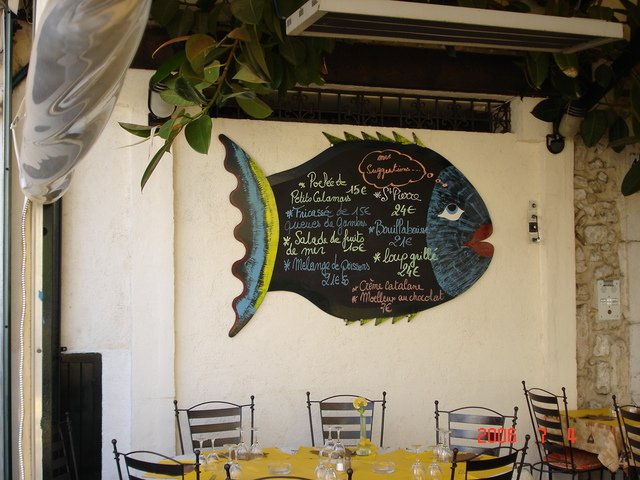 mes
Suggestions...
Poêlée de
Petits Calamars 15€
Fricassé de 15€
queues de Gambas
Salade de fruits
de mer 10€
Mélange de Poissons
21€50
St Pierre
24€
Bouillabaisse
21€
Loup grillé
24€
Crème Catalane
Moelleux au chocolat
7€
2006 7 4